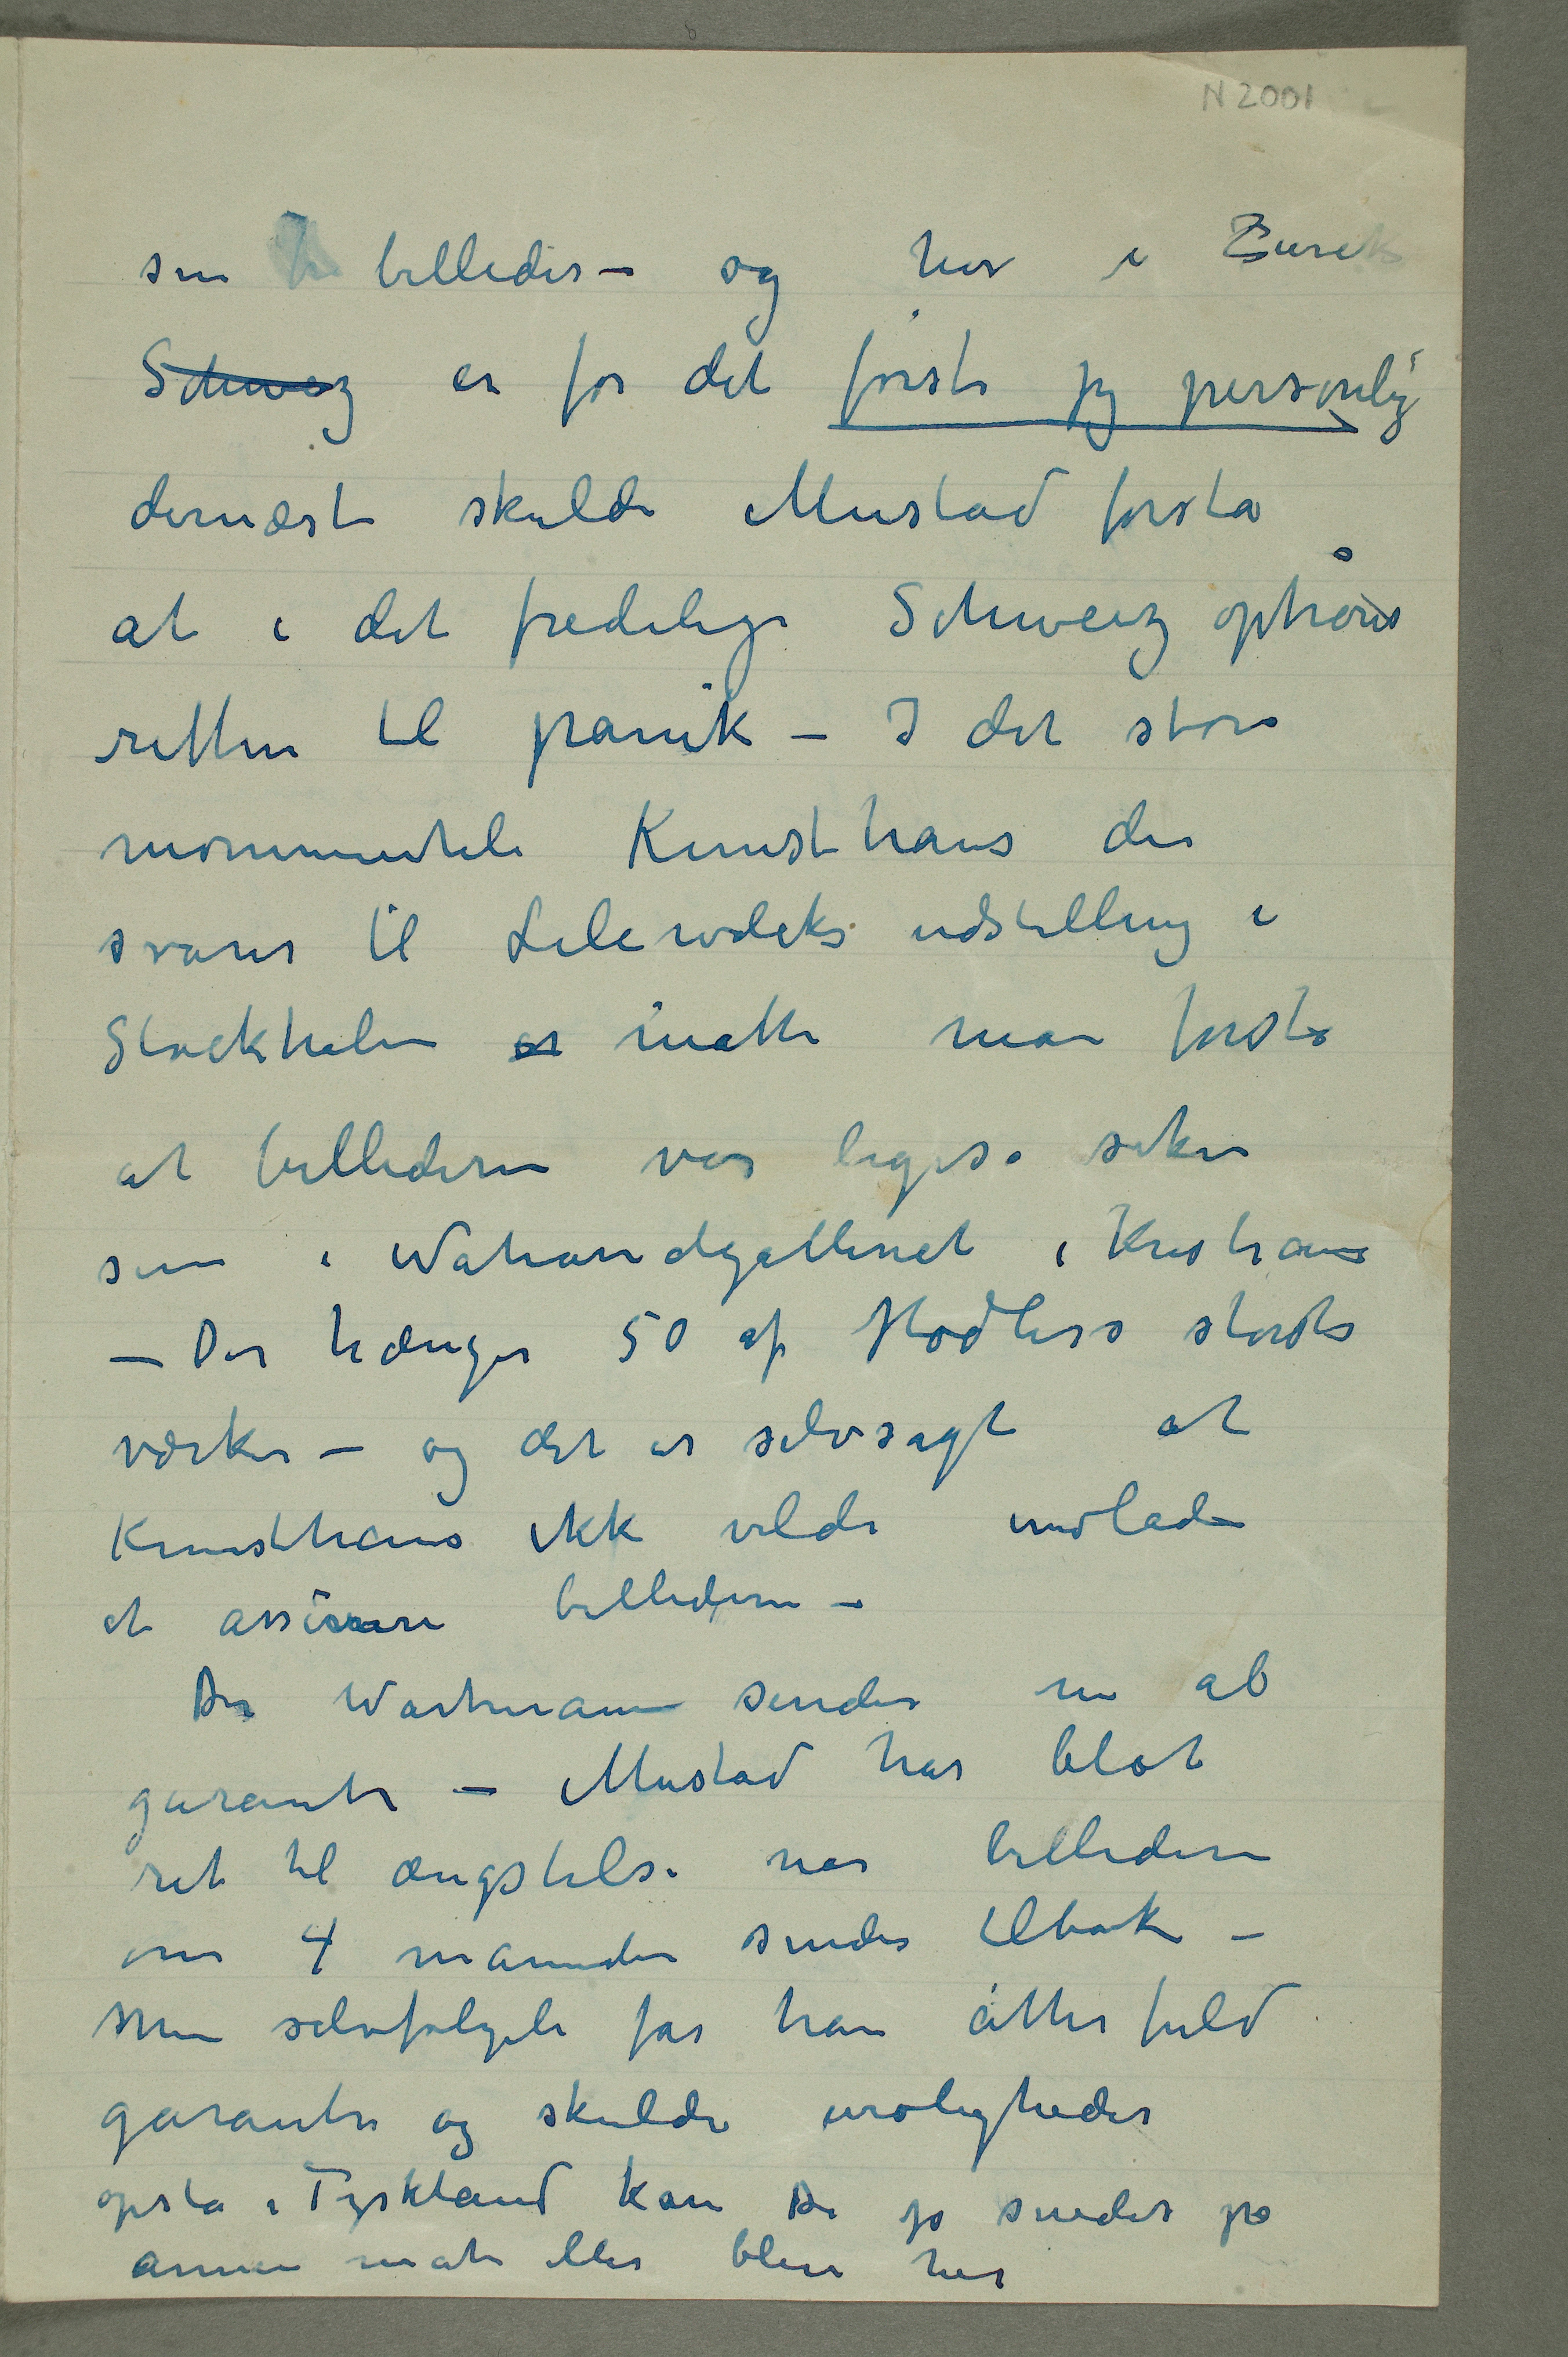 N 2001
sine billeder – og her i Zürich
Schweiz er for det første jeg personlig
dernæst skulde Mustad forstå
at i det fredelige Schweiz ophører
retten til panik – I det store
monumentale Kunsthaus der
svarer til Liljevalchs udstilling i
Stockholm er måtte man forstå
at billederne var ligeså sikre
som i Nationalgalleriet i Kristiania
– Der hænger 50 af Hodlers største
værker – og det er selvsagt at
Kunsthaus ikke vilde undlade
at assurere billederne –
Dr Wartmann sender nu al
garanti – Mustad har blot
ret til ængstelse når billederne
om 4 måneder sendes tilbake –
Men selvfølgelig får han atter fuld
garanti og skulde uroligheder
opstå i Tyskland kan De jo sendes på
annen måte eller blive her